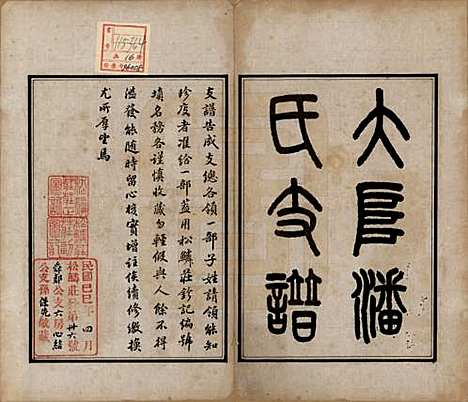 大阜潘
氏支譜
支譜告成支總各領一部子姓請領能知
珍度者准給一部蓋用松鱗莊鈐記編號
填名務各謹慎收藏勿輕假與人餘不得
濫發能隨時留心核實增注俟續修繳換
尤所厚望焉
民國己巳年四月
松鱗莊 第廿六號
公支六房心
公支孫 敬藏